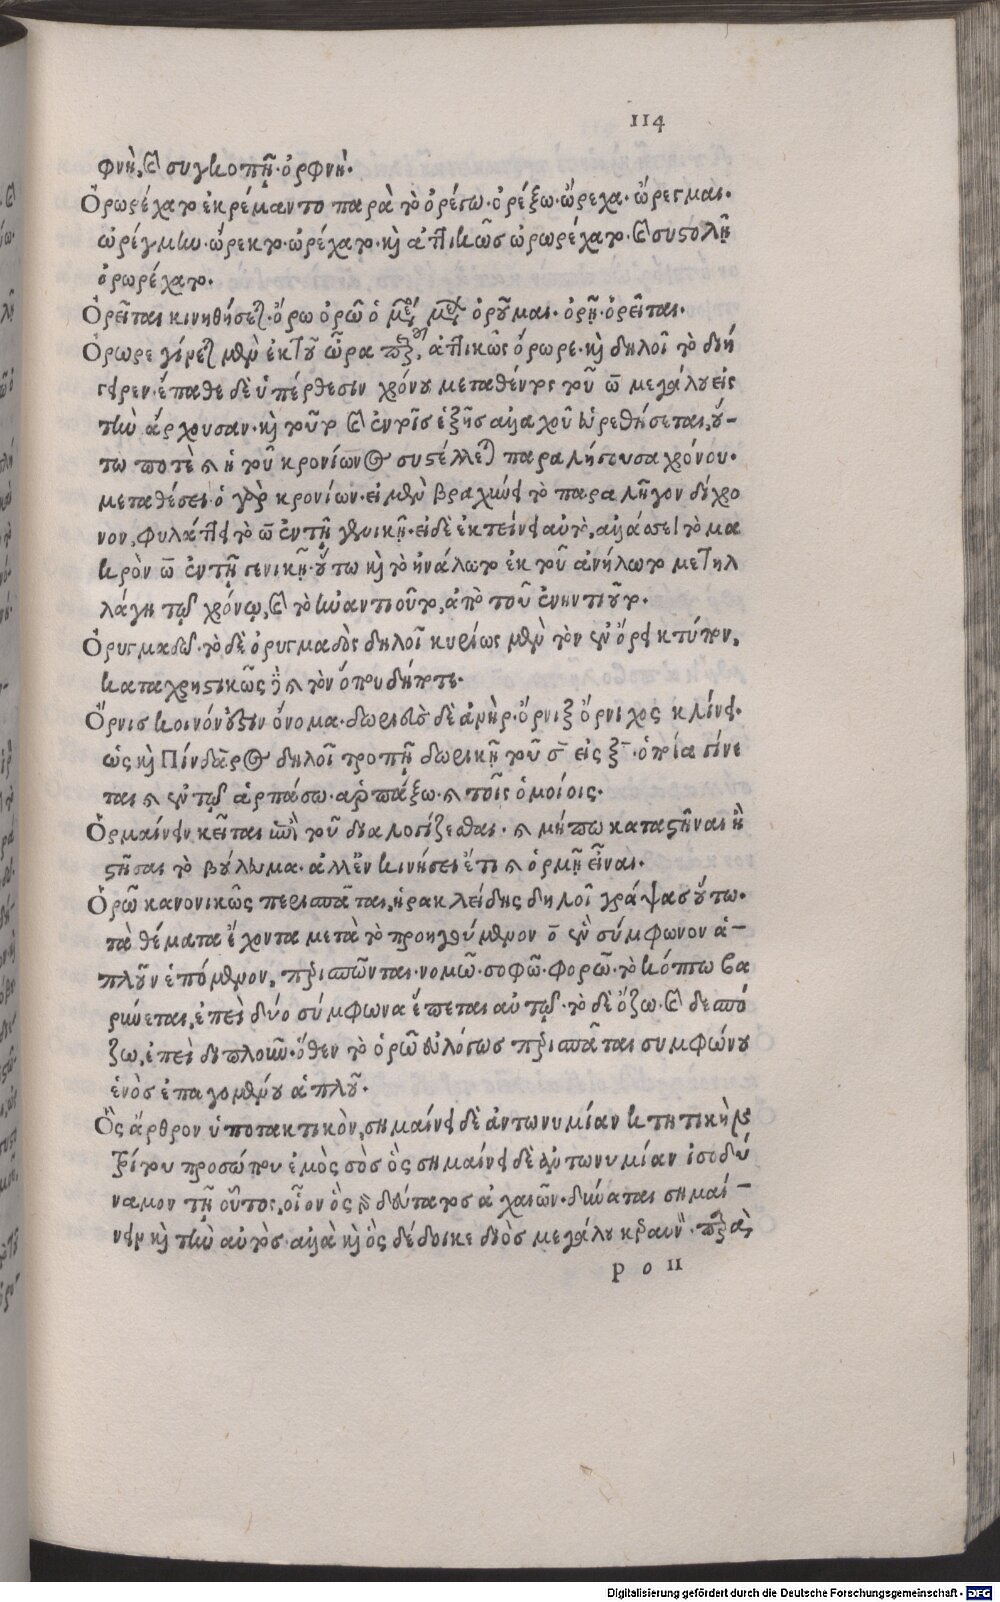 114
φνὴ, καὶ συγκοπῇ. ὀρφνή.
Ὀρωρέχατο ἐκρέμαντο παρὰ τὸ ὀρέγω. ὀρέξω. ὤρεχα. ὤρεγμαι.
ὠρέγμην. ὤρεκτο. ὠρέχατο. κὴ ἀττικῶς ὠρωρέχατο. καὶ συστολῇ
ὀρωρέχατο.
Ὀρεῖται κινηθήσεται. ὄρω ὀρῶ ὁ μέσος μέλλων ὀροῦμαι. ὀρῇ. ὀρεῖται.
Ὄρωρε γίνεται μὲν ἐκ τοῦ ὦρα ἀττικῶς ὄρωρε. κὴ δηλοῖ τὸ διή
γειρεν. ἔπαθε δὲ ὑπέρθεσιν χρόνου μεταθέντος τοῦ ω μεγάλου εἰς
τὴν ἄρχουσαν. κὴ τοῦτο καὶ ἐν τοῖς ἑξῆς οὕ-
τω ποτὲ καὶ ἡ τοῦ κρονίωνος συστέλλεται παραλήγουσα χρόνου.
μεταθέσει. ὁ γὰρ κρονίων. εἰ μὲν βραχύνει τὸ παραλῆγον δίχρο
νον, φυλάττει τὸ ω ἐν τῇ γενικῇ. εἰ δὲ ἐκτείνει αὐτὸ, τὸ μα
κρὸν ω ἐν τῇ γενικῇ. οὕτω κὴ τὸ ἠνάλωτο ἐκ τοῦ ἀνήλωτο μετηλ
λάγη τῷ χρόνῳ, καὶ τὸ ἠναντιοῦτο, ἀπὸ τοῦ ἐνηντιοῦτο.
Ὀρυγμαδῷ. τὸ δὲ ὀρυγμαδὸς δηλοῖ κυρίως μὲν τὸν ἐν ὄρει κτύπον,
καταχρηστικῶς δὲ καὶ τὸν ὁπουδήποτε.
Ὄρνις κοινόν ἐστιν ὄνομα. δωριεὺς δὲ ἀνὴρ. ὄρνιξ ὄρνιχος κλίνει.
ὡς κὴ Πίνδαρος δηλοῖ τροπῇ δωρικῇ τοῦ σ εἰς ξ. ὁποία γίνε
ται καὶ ἐν τῷ ἁρπάσω. ἁρπάξω. καὶ τοῖς ὁμοίοις.
Ὁρμαίνειν κεῖται ἐπὶ τοῦ διαλογίζεσθαι. καὶ μήπω καταστῆναι ἢ
στῆσαι τὸ βούλημα. ἀλλ' ἐν κινήσει ἔτι καὶ ὁρμῇ εἶναι.
Ὁρῶ κανονικῶς περισπᾶται, ἡρακλείδης δηλοῖ γράψας οὕτω.
τὰ θέματα ἔχοντα μετὰ τὸ προηγούμενον ο ἓν σύμφωνον ἁ-
πλοῦν ἑπόμενον, περισπῶνται. νομῶ. σοφῶ. φορῶ. τὸ κόπτω βα
ρύνεται, ἐπεὶ δύο σύμφωνα ἕπεται αὐτῷ. τὸ δὲ ὄζω. καὶ δεσπό
ζω, ἐπεὶ διπλοῦν. ὅθεν τὸ ὁρῶ εὐλόγως περισπᾶται συμφώνου
ἑνὸς ἐπαγομένου ἁπλοῦ.
Ὃς ἄρθρον ὑποτακτικὸν, σημαίνει δὲ ἀντωνυμίαν κτητικὴν
τρίτου προσώπου ἐμὸς σὸς ὃς σημαίνει δὲ ἀντωνυμίαν ἰσοδύ
ναμον τῇ οὗτος, οἷον ὃς δεύτατος ἀχαιῶν. δύναται σημαί-
νειν κὴ τὴν αὐτὸς. ἀλλὰ κὴ ὃς δέδοικε διὸς μεγάλου
ρ ο ιι
Digitalisierung gefördert durch die Deutsche Forschungsgemeinschaft - DFG